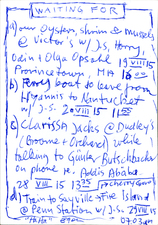 WAITING FOR
a) our Oyster, shrim & mussels
@ Victor's w/ J.S. Horry,
Odin + Olga Opsahl 19 VIII 15
Provincetown, MA 16 00
b) Ferry boat to leave from
Hyannis to Nantucket
w/ J.S. 20 VIII 15 11
c) Clarissa Jacks @ Dudley's
(Broome + Orchard) while
talking to Günter Butschbacher
on phone re. Addis Ababa
28 VIII 15 13 25
d) Train to Sayville + Fire Island
@ Penn Station w/ J.S. 29 VIII 15